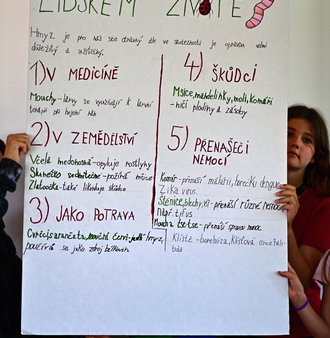 LIDSKÉM ŽIVOTĚ
Hmyz je pro nás sice otravný ale ve skutečnosti je opravdu velmi
důležitý a užitečný.
1) V MEDICÍNĚ
Mouchy - larvy se využívají k larvní
terapii při hojení ran
2) V ZEMĚDĚLSTVÍ
Včela medonosná - opyluje rostliny
Slunéčko sedmitečné - požírá mšice
Zlatoočka - také likviduje škůdce
3) JAKO POTRAVA
Cvrčci, sarančata, mouční červi - jedlý hmyz,
používá se jako zdroj bílkovin
4) ŠKŮDCI
Mšice, mandelinky, moli, komáři
- ničí plodiny a zásoby
5) PŘENAŠEČI
NEMOCÍ
Komár - přenáší malárii, horečku dengue
Zika virus.
Štěnice, blechy, vši - přenáší různé nemoci
např. tifus
Moucha tsetse - přenáší spavou nemoc
Klíště - borelióza, klíšťová encefali-
tida